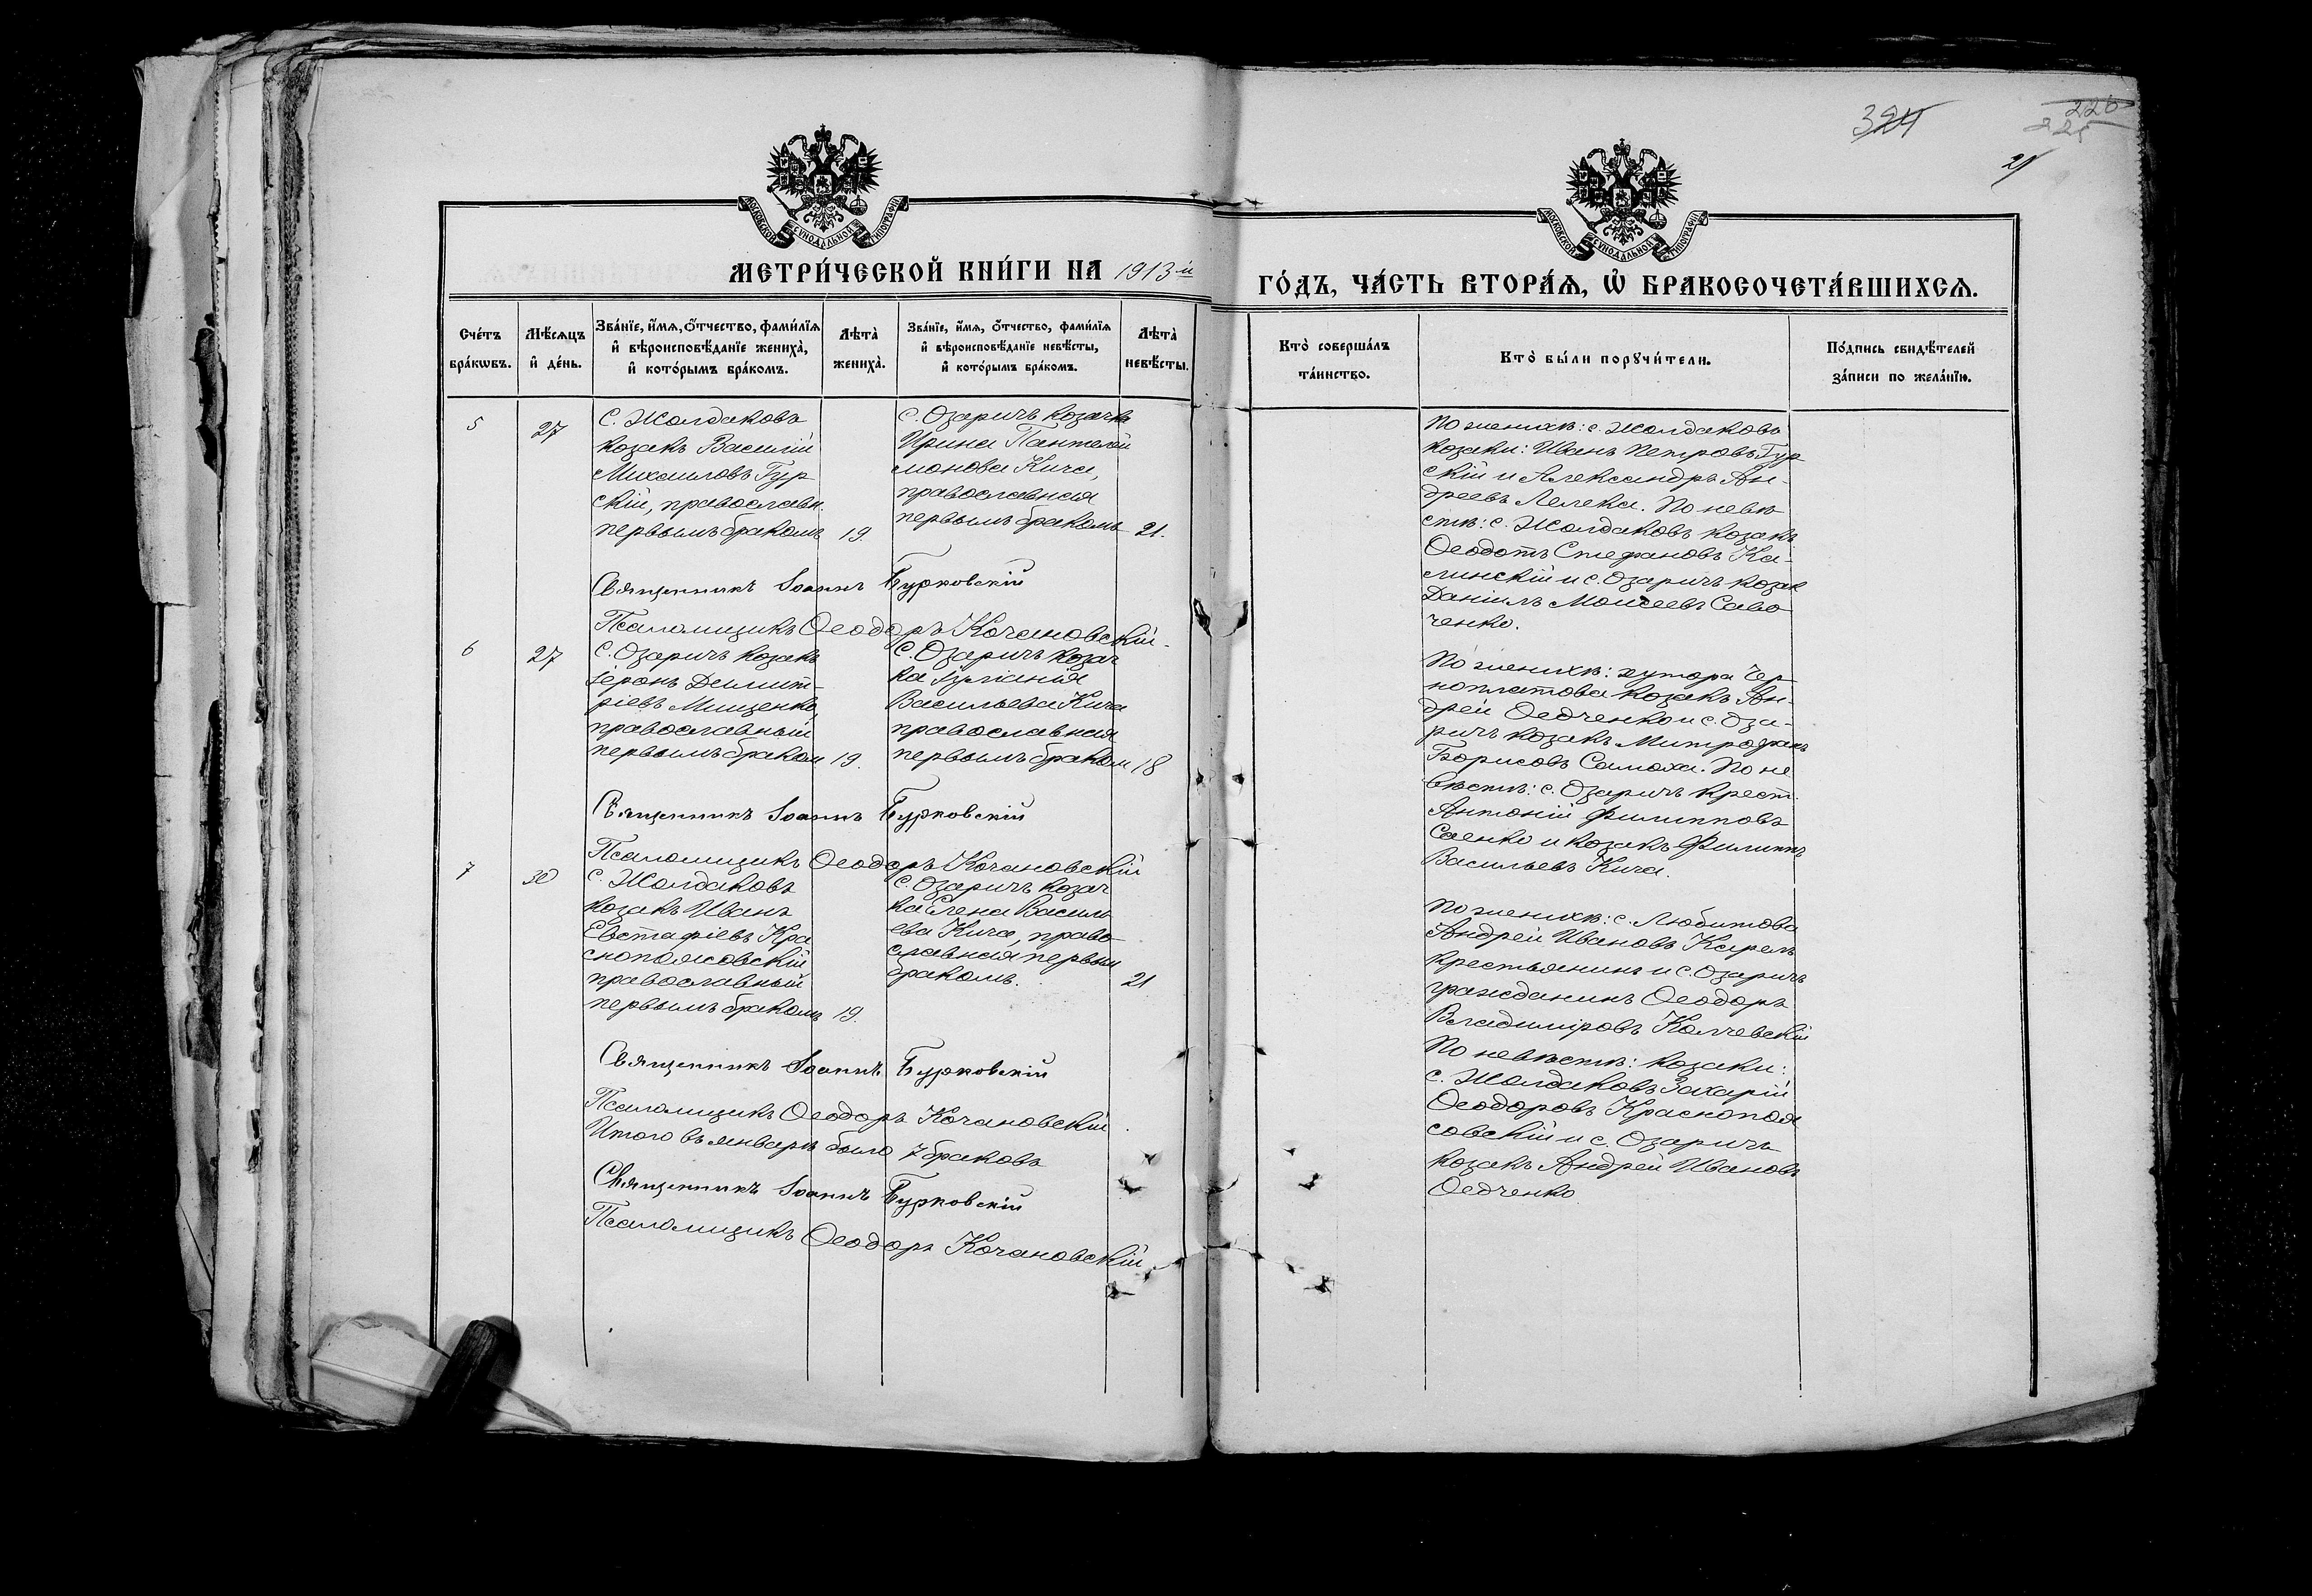 324
226
225
21
МОСКОВСКОЙ СУНОДАЛЬНОЙ ТИПОГРАФІИ
МОСКОВСКОЙ СУНОДАЛЬНОЙ ТИПОГРАФІИ
МЕТРИ́ЧЕСКОЙ КНИ́ГИ НА 1913-й
ГО́ДЪ, ЧА́СТЬ ВТОРА́Я, Ѡ҆ БРАКОСОЧЕТА́ВШИХСЯ.
Сче́тъ бра́кѡвъ.
Мѣ́сяцъ и҆ де́нь.
Зва́нїе, и҆́мя, ѻ҆́тчество, фами́лїя и҆ вѣроисповѣ́данїе жениха̀, и҆ кото́рымъ бра́комъ.
Лѣта̀ жениха̀.
Зва́нїе, и҆́мя, ѻ҆́тчество, фами́лїя и҆ вѣроисповѣ́данїе невѣ́сты, и҆ кото́рымъ бра́комъ.
Лѣта̀ невѣ́сты.
Кто̀ соверша́лъ та́инство.
Кто̀ бы́ли порꙋчи́тели.
По́дпись свидѣ́телей за́писи по жела́нїю.
5
27
С. Жолдаковъ
козакъ Василій
Михаиловъ Гур
скій, православн.
первымъ бракомъ 19.
С. Озаричъ козачка
Ирина Пантелей
монова Кича,
православная
первымъ бракомъ 21.
По женихѣ: с. Жолдаковъ
козаки: Иванъ Петровъ Гур
скій и Александръ Ан-
дреевъ Лелека. По невѣ
стѣ: с. Жолдаковъ козакъ
Ѳеодотъ Стефановъ Ка-
линскій и с. Озаричъ козак
Даніилъ Моисеевъ Саво
ченко.
Священникъ Іоаннъ Бурковскій
Псаломщикъ Ѳеодоръ Кочановскій.
6
27
С. Озаричъ козакъ
Іеронъ Димит-
ріевъ Мищенко,
православный
первымъ браком 19.
С. Озаричъ козач
ка Іуліанія
Васильева Кича
православная
первымъ браком 18
По женихѣ: хутора Чер
ноплатова козакъ Ан-
дрей Ѳедченко и с. Оза-
ричъ козакъ Митрофанъ
Борисовъ Самоха. По не
вѣстѣ: с. Озаричъ крест.
Антоній Филипповъ
Саенко и козакъ Филиппъ
Васильевъ Кича.
Священникъ Іоаннъ Бурковскій
Псаломщикъ Ѳеодоръ Кочановскій
7
30
С. Жолдаковъ
козакъ Иванъ
Евстафіевъ Кра
снопоясовскій
православный
первымъ бракомъ 19.
С. Озаричъ козач
ка Елена Василь
ева Кича, право
славная первым
бракомъ. 21
По женихѣ: с. Любитова
Андрей Ивановъ Карель
крестьянинъ и с. Озаричъ
гражданинъ Ѳеодоръ
Владиміровъ Колчевскій
По невѣстѣ: козаки:
с. Жолдаковъ Захарій
Ѳеодоровъ Краснопоя
совскій и с. Озаричъ
козакъ Андрей Ивановъ
Ѳедченко
Священникъ Іоаннъ Бурковскій
Псаломщикъ Ѳеодоръ Кочановскій.
Итого въ январѣ было 7 браковъ
Священникъ Іоаннъ Бурковскій
Псаломщикъ Ѳеодоръ Кочановскій